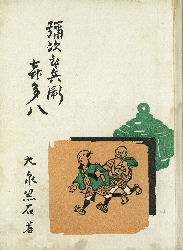 彌次郎兵衛
喜多八
大泉黒石著